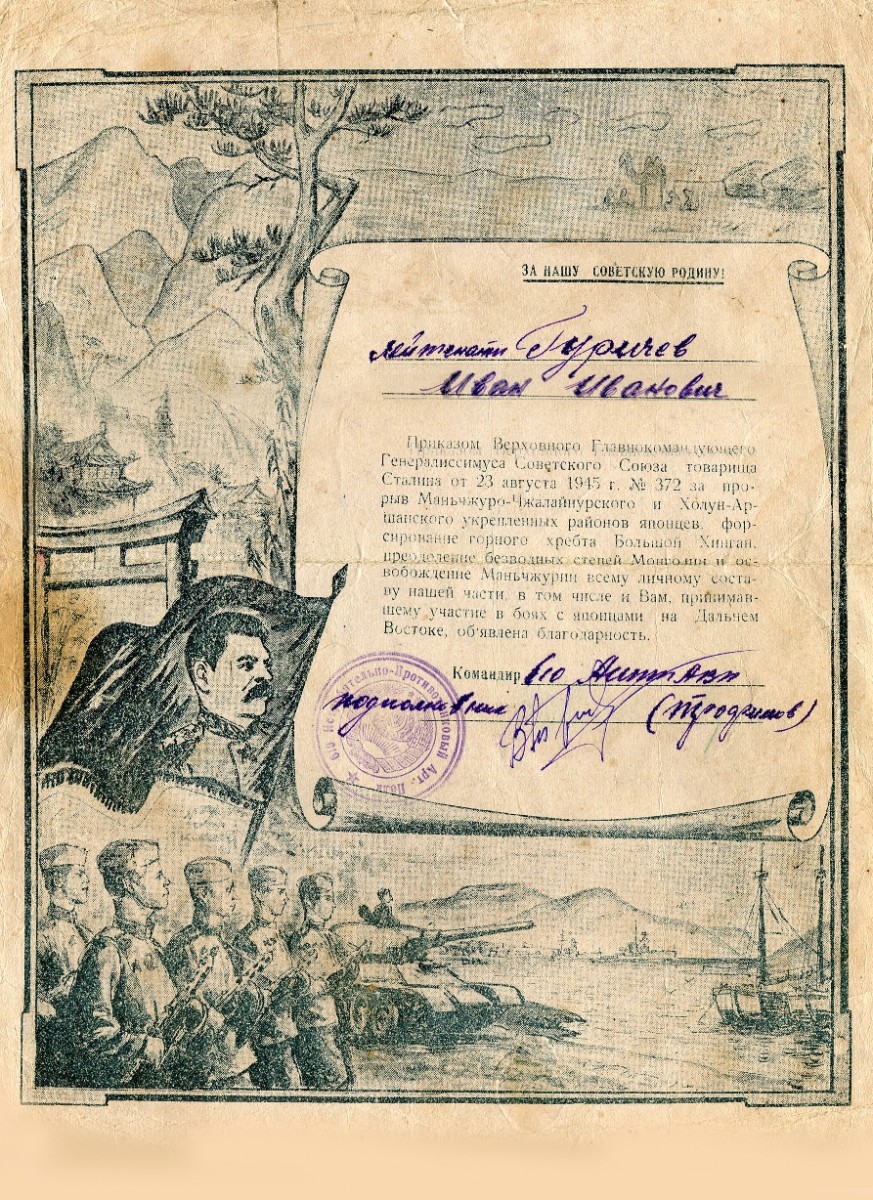 ЗА НАШУ СОВЕТСКУЮ РОДИНУ!
лейтенант Гуричев
Иван Иванович
Приказом Верховного Главнокомандующего
Генералиссимуса Советского Союза товарища
Сталина от 23 августа 1945 г. № 372 за про-
рыв Маньчжуро-Чжалайнурского и Холун-Ар-
шанского укрепленных районов японцев, фор-
сирование горного хребта Большой Хинган,
преодоление безводных степей Монголии и ос-
вобождение Маньчжурии всему личному соста-
ву нашей части, в том числе и Вам, принимав-
шему участие в боях с японцами на Дальнем
Востоке, об'явлена благодарность.
Командир 610
подполковник (Трофимов)
610 Истребительно-Противотанковый Арт. Полк